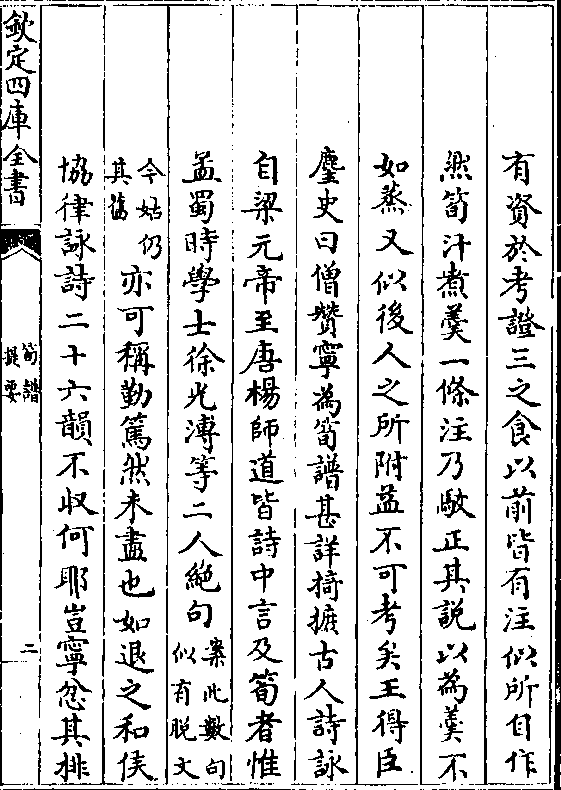 有資於考證三之食以前皆有注似所自作
然筍汁煮羮一條注乃駮正其説以為羮不
如蒸又似後人之所附益不可考矣王得臣
麈史曰僧贊寧為筍譜甚詳掎摭古人詩詠
自梁元帝至唐楊師道皆詩中言及筍者惟
孟蜀時學士徐光溥等二人絶句案此數句似有脱文
今姑仍其舊亦可稱勤篤然未盡也如退之和侯
協律詠詩二十六韻不収何耶豈寧忿其排
欽定四庫全書
筍譜
提要
二